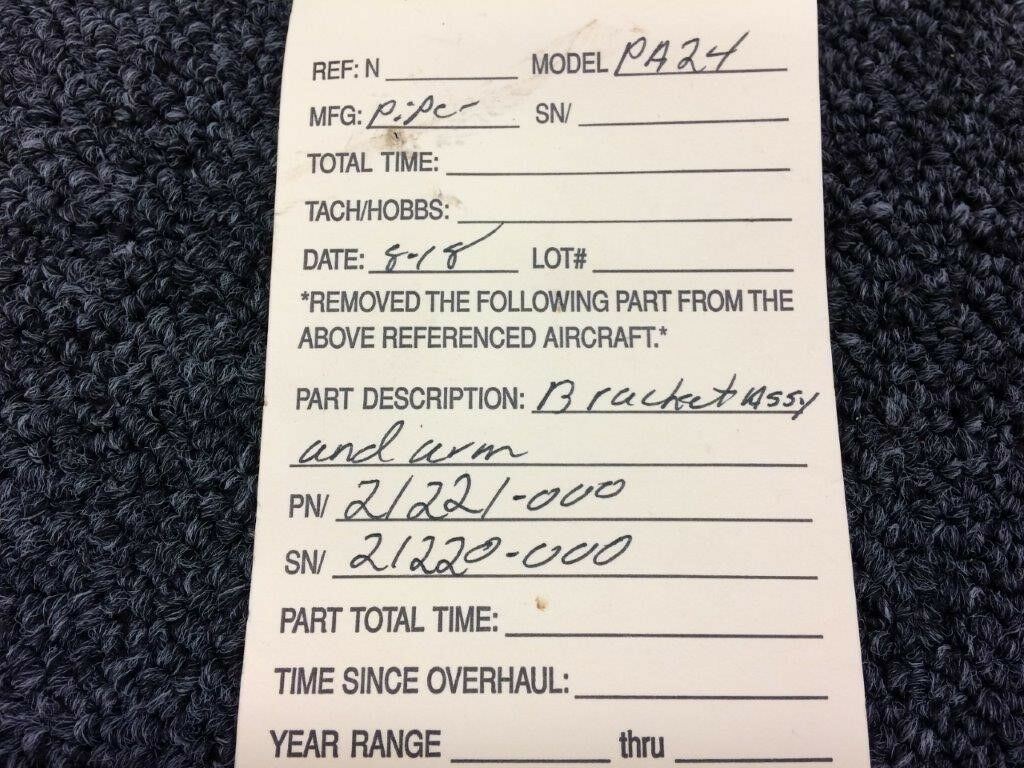 REF: N MODEL PA24
MFG: Piper SN/
TOTAL TIME:
TACH/HOBBS:
DATE: 8-18 LOT#
*REMOVED THE FOLLOWING PART FROM THE
ABOVE REFERENCED AIRCRAFT.*
PART DESCRIPTION: Bracket Assy
and arm
PN/ 21221-000
SN/ 21220-000
PART TOTAL TIME:
TIME SINCE OVERHAUL:
YEAR RANGE thru